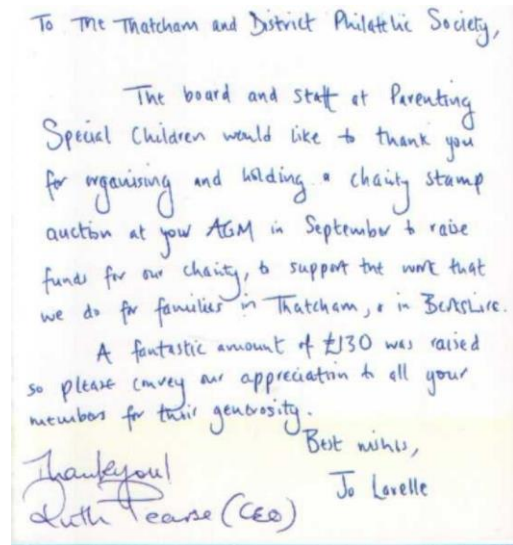 To The Thatcham and District Philatelic Society,
The board and staff at Parenting
Special Children would like to thank you
for organising and holding a charity stamp
auction at your AGM in September to raise
funds for our charity, to support the work that
we do for families in Thatcham, & in Berkshire.
A fantastic amount of £130 was raised
so please convey our appreciation to all your
members for their generosity.
Best wishes,
Jo Lavelle
Thankyou!
Ruth Pearse (CEO)